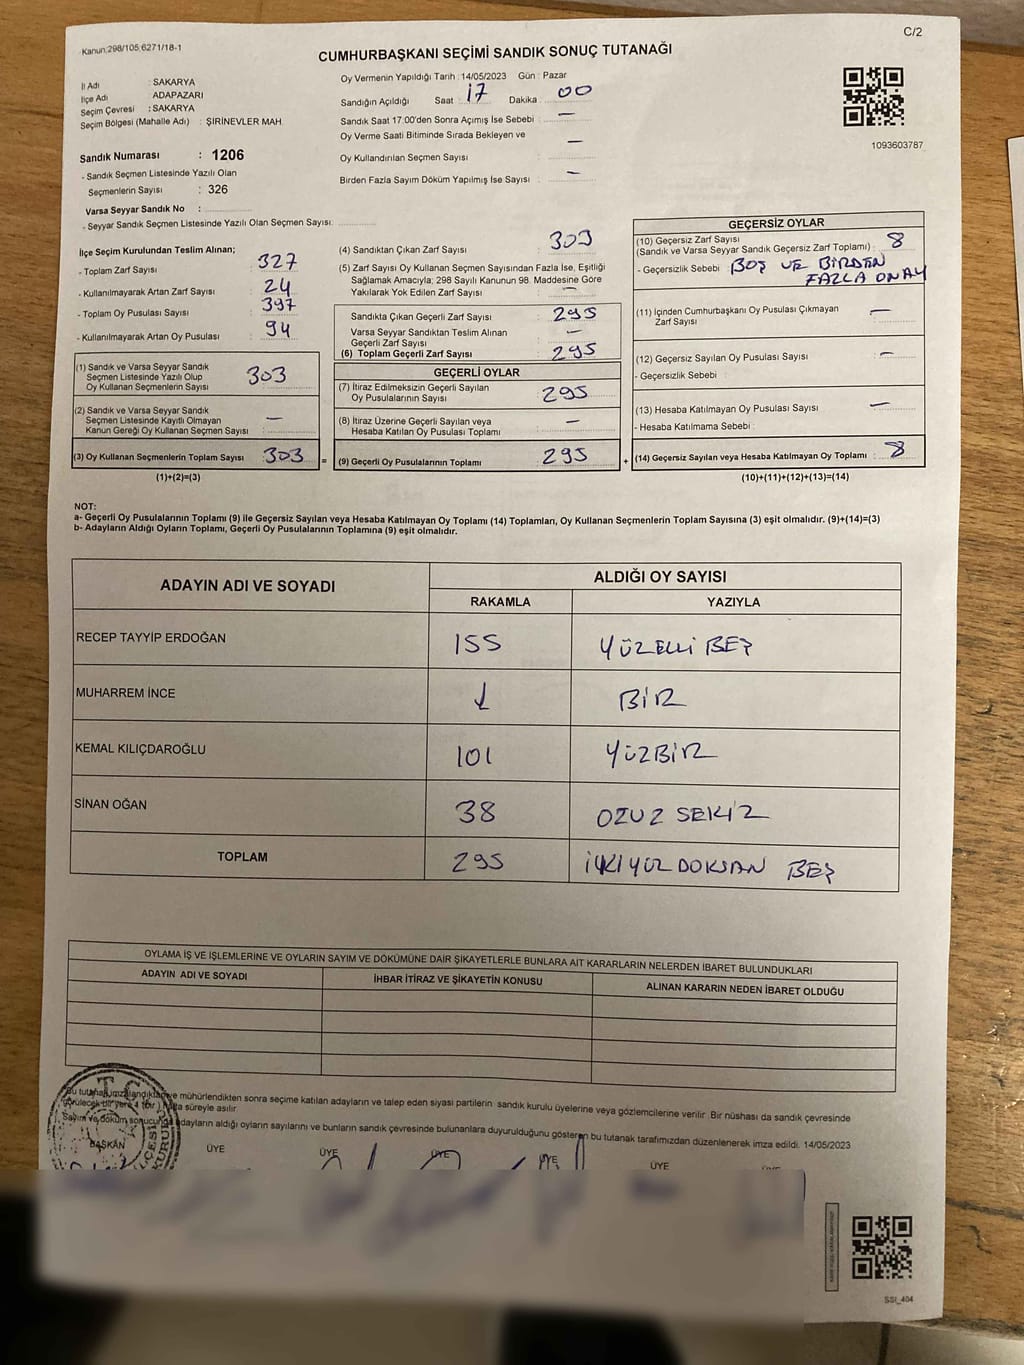 Kanun:298/105 6271/18-1
C/2
CUMHURBAŞKANI SEÇİMİ SANDIK SONUÇ TUTANAĞI
İl Adı : SAKARYA
İlçe Adı : ADAPAZARI
Seçim Çevresi : SAKARYA
Seçim Bölgesi (Mahalle Adı) : ŞİRİNEVLER MAH
Sandık Numarası : 1206
- Sandık Seçmen Listesinde Yazılı Olan
Seçmenlerin Sayısı : 326
Varsa Seyyar Sandık No :
- Seyyar Sandık Seçmen Listesinde Yazılı Olan Seçmen Sayısı:
Oy Vermenin Yapıldığı Tarih : 14/05/2023 Gün : Pazar
Sandığın Açıldığı Saat : 17 Dakika : 00
Sandık Saat 17:00'den Sonra Açımış İse Sebebi : —
Oy Verme Saati Bitiminde Sırada Bekleyen ve
Oy Kullandırılan Seçmen Sayısı : —
Birden Fazla Sayım Döküm Yapılmış İse Sayısı : —
1093603787
İlçe Seçim Kurulundan Teslim Alınan;
- Toplam Zarf Sayısı : 327
- Kullanılmayarak Artan Zarf Sayısı : 24
- Toplam Oy Pusulası Sayısı : 397
- Kullanılmayarak Artan Oy Pusulası : 94
(1) Sandık ve Varsa Seyyar Sandık
Seçmen Listesinde Yazılı Olup
Oy Kullanan Seçmenlerin Sayısı : 303
(2) Sandık ve Varsa Seyyar Sandık
Seçmen Listesinde Kayıtlı Olmayan
Kanun Gereği Oy Kullanan Seçmen Sayısı : —
(3) Oy Kullanan Seçmenlerin Toplam Sayısı : 303 =
(1)+(2)=(3)
(4) Sandıktan Çıkan Zarf Sayısı : 303
(5) Zarf Sayısı Oy Kullanan Seçmen Sayısından Fazla İse, Eşitliği
Sağlamak Amacıyla; 298 Sayılı Kanunun 98. Maddesine Göre
Yakılarak Yok Edilen Zarf Sayısı : —
Sandıkta Çıkan Geçerli Zarf Sayısı : 295
Varsa Seyyar Sandıktan Teslim Alınan
Geçerli Zarf Sayısı : —
(6) Toplam Geçerli Zarf Sayısı : 295
GEÇERLİ OYLAR
(7) İtiraz Edilmeksizin Geçerli Sayılan
Oy Pusulalarının Sayısı : 295
(8) İtiraz Üzerine Geçerli Sayılan veya
Hesaba Katılan Oy Pusulası Toplamı : —
(9) Geçerli Oy Pusulalarının Toplamı : 295 +
GEÇERSİZ OYLAR
(10) Geçersiz Zarf Sayısı
(Sandık ve Varsa Seyyar Sandık Geçersiz Zarf Toplamı) : 8
- Geçersizlik Sebebi : BOŞ VE BİRDEN
FAZLA ONAY
(11) İçinden Cumhurbaşkanı Oy Pusulası Çıkmayan
Zarf Sayısı : —
(12) Geçersiz Sayılan Oy Pusulası Sayısı : —
- Geçersizlik Sebebi :
(13) Hesaba Katılmayan Oy Pusulası Sayısı : —
- Hesaba Katılmama Sebebi :
(14) Geçersiz Sayılan veya Hesaba Katılmayan Oy Toplamı : 8
(10)+(11)+(12)+(13)=(14)
NOT:
a- Geçerli Oy Pusulalarının Toplamı (9) ile Geçersiz Sayılan veya Hesaba Katılmayan Oy Toplamı (14) Toplamları, Oy Kullanan Seçmenlerin Toplam Sayısına (3) eşit olmalıdır. (9)+(14)=(3)
b- Adayların Aldığı Oyların Toplamı, Geçerli Oy Pusulalarının Toplamına (9) eşit olmalıdır.
ADAYIN ADI VE SOYADI
ALDIĞI OY SAYISI
RAKAMLA YAZIYLA
RECEP TAYYİP ERDOĞAN 155 YÜZELLİ BEŞ
MUHARREM İNCE 1 BİR
KEMAL KILIÇDAROĞLU 101 YÜZBİR
SİNAN OĞAN 38 OTUZ SEKİZ
TOPLAM 295 İKİYÜZ DOKSAN BEŞ
OYLAMA İŞ VE İŞLEMLERİNE VE OYLARIN SAYIM VE DÖKÜMÜNE DAİR ŞİKAYETLERLE BUNLARA AİT KARARLARIN NELERDEN İBARET BULUNDUKLARI
ADAYIN ADI VE SOYADI İHBAR İTİRAZ VE ŞİKAYETİN KONUSU ALINAN KARARIN NEDEN İBARET OLDUĞU
Bu tutanak imzalandıktan ve mühürlendikten sonra seçime katılan adayların ve talep eden siyasi partilerin sandık kurulu üyelerine veya gözlemcilerine verilir. Bir nüshası da sandık çevresinde
görülecek bir yere süreyle asılır.
Sayım ve döküm sonucunda adayların aldığı oyların sayılarını ve bunların sandık çevresinde bulunanlara duyurulduğunu gösteren bu tutanak tarafımızdan düzenlenerek imza edildi. 14/05/2023
BAŞKAN ÜYE ÜYE ÜYE ÜYE ÜYE
T.C.
SSI_404